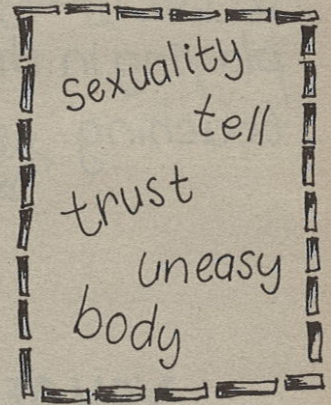 sexuality
tell
trust
uneasy
body